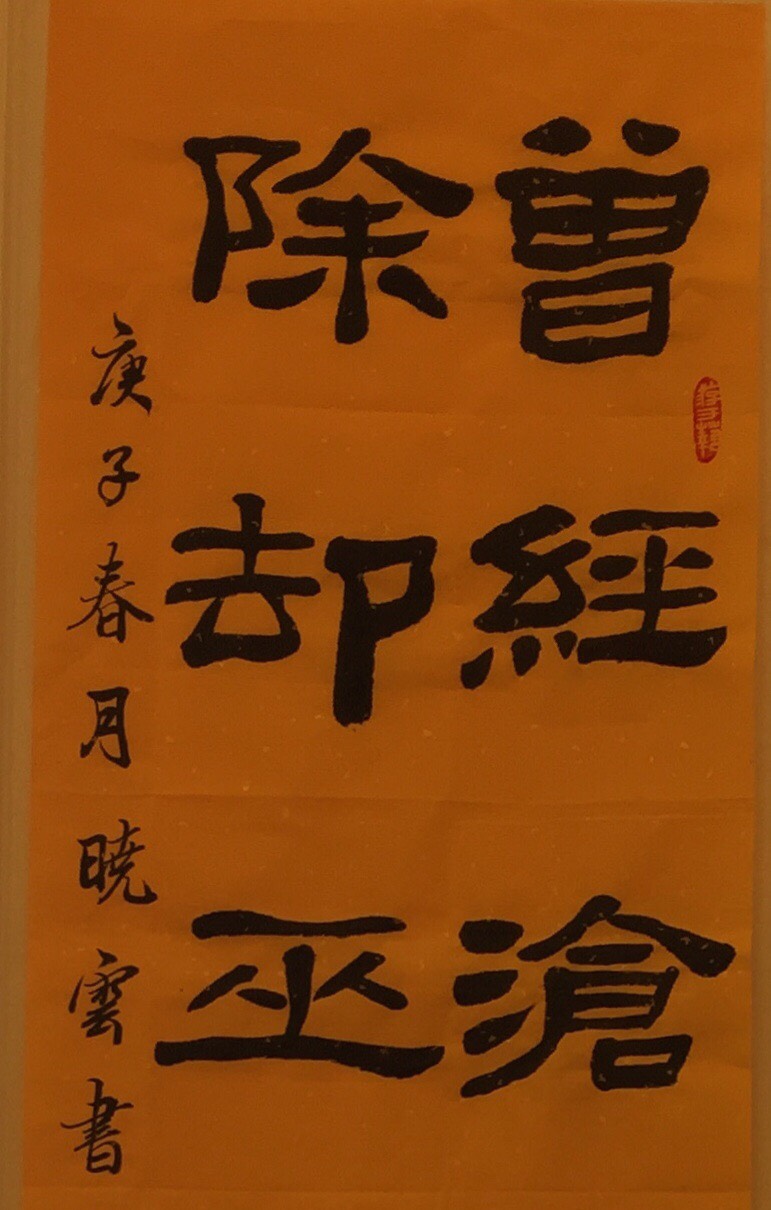 曾經滄
除却巫
庚子春月暁雲書